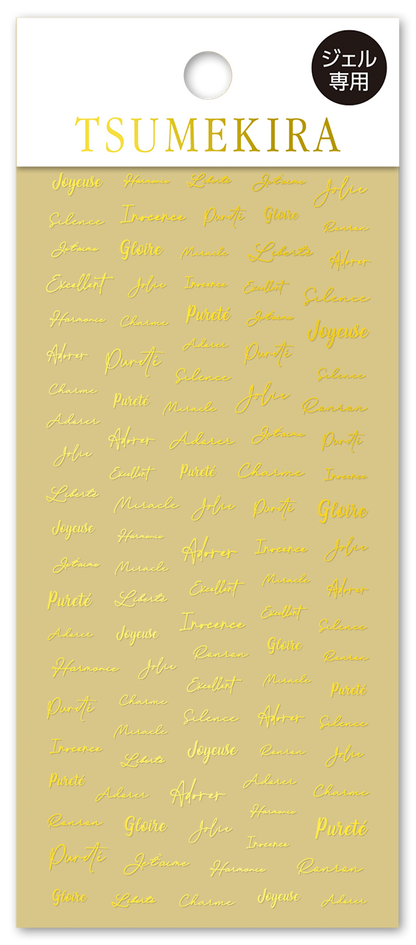 ジェル
専用
TSUMEKIRA
Joyeuse Harmonie Liberté Jet'aime Jolie
Silence Inocence Puriti Gloire Ronron
Jet'aime Gloire Miracule Liberté Adorer
Excellent Jolie Inocence Excellent Silence
Harmonie Charme Pureté Jet'aime Joyeuse
Adorer Puriti Adorer Puriti
Silence Silence
Charme Pureté Miracle Jolie Ronron
Adorer Adorer Adorer Jet'aime Puriti
Jolie Excellent Pureté Charme Inocence
Liberté Miracle Jolie Puriti Gloire
Joyeuse Harmonie Adorer Inocence Jolie
Jet'aime Miracle Excellent Miracle Adorer
Pureté Liberté Inocence Excellent Silence
Adorer Joyeuse Ronron Gloire Ronron
Harmonie Jolie Excellent Miracle Pureté
Puriti Charme Silence Adorer Silence
Miracle
Inocence Liberté Joyeuse Ronron Jolie
Pureté Adorer Adorer Adorer Charme
Ronron Gloire Jolie Harmonie Pureté
Inocence
Puriti Jet'aime Harmonie Ronron
Gloire Liberté Charme Joyeuse Adorer